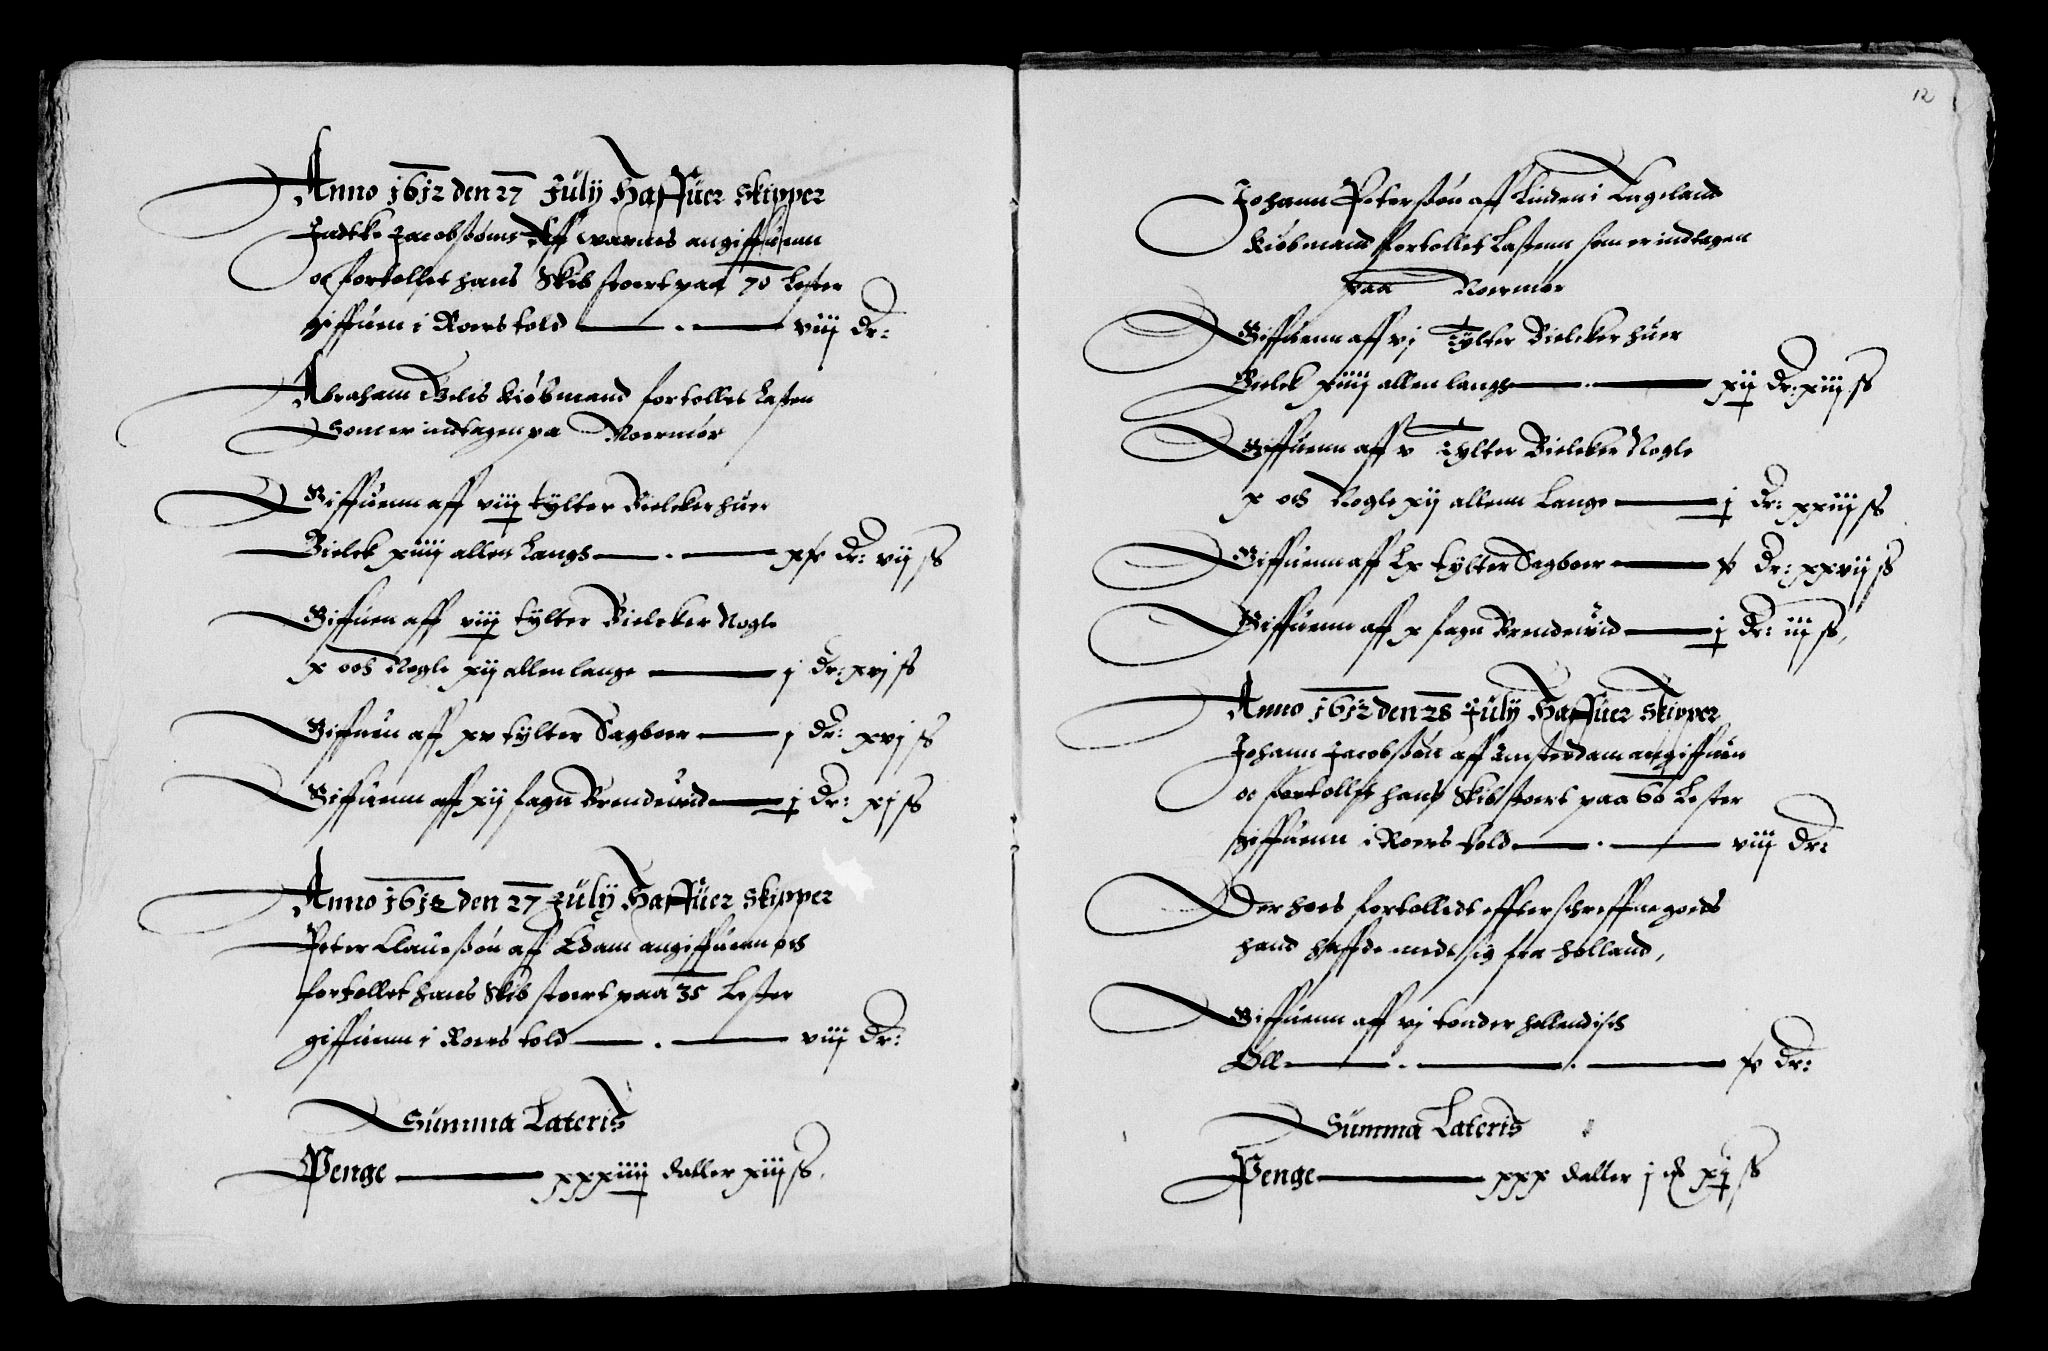 Anno 1612 den 27 July Haffuer Skipper
Jacobssønn Aff warns angiffuenn
oc fortollet hans Skib stoert paa 70 Lester
giffuen i Roers told — . — viij Dr:
Abraham Kiøbmand fortollet Lasten
Som er indtagen pa Noermør
Giffuenn aff viij tylter Bielcker huer
Bielck xiiij allen Langs — . — Dr: vij ß
Giffuen aff viij tylter Bielcker Nogle
x och Nogle xij allen lange — j Dr: xvj ß
Giffuen aff xv tylter Sagboer — j Dr: xvj ß
Giffuenn aff xij fagn Brendewid — j Dr: xj ß
Anno 1612 den 27 July Haffuer Skipper
Peter Clauessøn aff Edam angiffuenn och
fortollet hans Skib stoert paa 35 Lester
giffuenn i Roers told — . — viij Dr:
Summa Lateris
Penge — xxxiiij daller xiij ß.
12
Johann Peterssøn aff Linden i Engeland
Kiøbmand fortollet Lastenn som er indtagen
paa Noermør
Giffuenn aff vj Tylter Bielcker huer
Bielck xiiij allen langs — . — xij Dr: xiij ß
Giffuenn aff v Tylter Bielcker Nogle
x och Nogle xij allenn Lange — j Dr: xxiij ß
Giffuenn aff Lx tylter Sagboer — Dr: xxvij ß
Giffuenn aff x fagn Brendewid — j Dr: iij ß.
Anno 1612 den 28 July Haffuer Skipper
Johann Jacobssøn aff Amsterdam angiffuen
oc fortollet hans Skib stoert paa 60 Lester
giffuenn i Roers told — . — viij Dr:
Der hoes fortolledt effterschreffne goeds
hand haffde med sig fra Holland,
Giffuenn aff vj tønder hollendisch
Øll — . — . — Dr:
Summa Lateris
Penge — xxx daller j xj ß